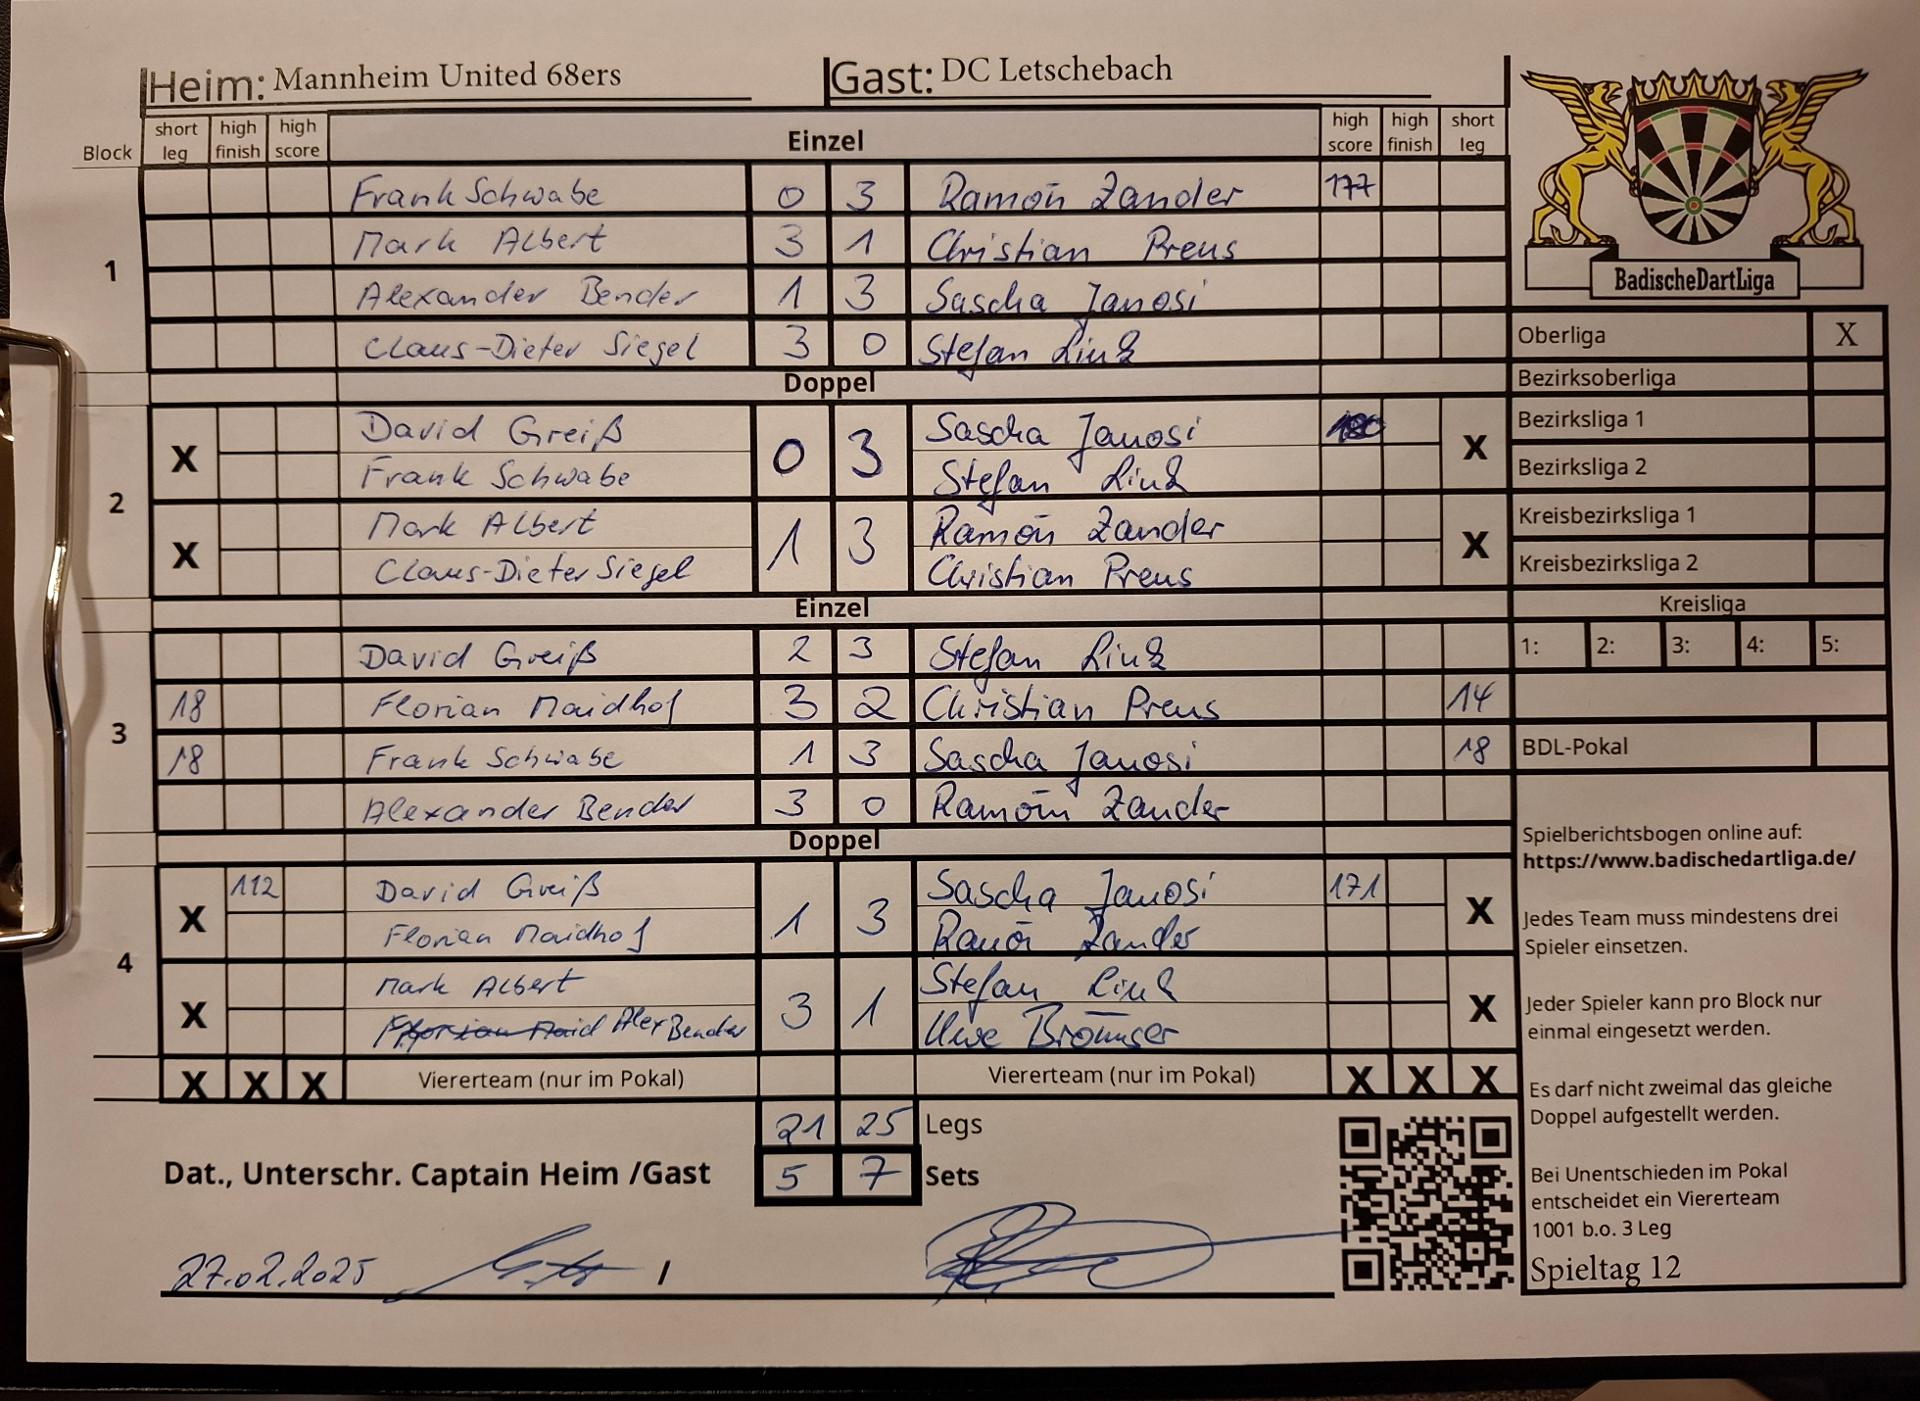 Heim: Mannheim United 68ers Gast: DC Letschebach
Block short leg high finish high score Einzel high score high finish short leg
1
Frank Schwabe 0 3 Ramón Zander 177
Mark Albert 3 1 Christian Preus
Alexander Bender 1 3 Sascha Janosi
Claus-Dieter Siegel 3 0 Stefan Link
Doppel
2
X David Greiß 0 3 Sascha Janosi 180 X
Frank Schwabe Stefan Link
X Mark Albert 1 3 Ramón Zander X
Claus-Dieter Siegel Christian Preus
Einzel
3
David Greiß 2 3 Stefan Link
18 Florian Maidhof 3 2 Christian Preus 14
18 Frank Schwabe 1 3 Sascha Janosi 18
Alexander Bender 3 0 Ramón Zander
Doppel
4
X 112 David Greiß 1 3 Sascha Janosi 171 X
Florian Maidhof Ramón Zander
X Mark Albert 3 1 Stefan Link X
Florian Maid Alex Bender Uwe
X X X Viererteam (nur im Pokal) Viererteam (nur im Pokal) X X X
21 25 Legs
Dat., Unterschr. Captain Heim /Gast 5 7 Sets
27.02.2025 /
BadischeDartLiga
Oberliga X
Bezirksoberliga
Bezirksliga 1
Bezirksliga 2
Kreisbezirksliga 1
Kreisbezirksliga 2
Kreisliga
1: 2: 3: 4: 5:
BDL-Pokal
Spielberichtsbogen online auf:
https://www.badischedartliga.de/
Jedes Team muss mindestens drei
Spieler einsetzen.
Jeder Spieler kann pro Block nur
einmal eingesetzt werden.
Es darf nicht zweimal das gleiche
Doppel aufgestellt werden.
Bei Unentschieden im Pokal
entscheidet ein Viererteam
1001 b.o. 3 Leg
Spieltag 12